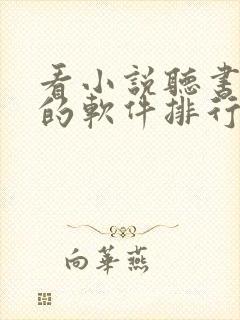 看小説聽書
的軟件排行
向華燕